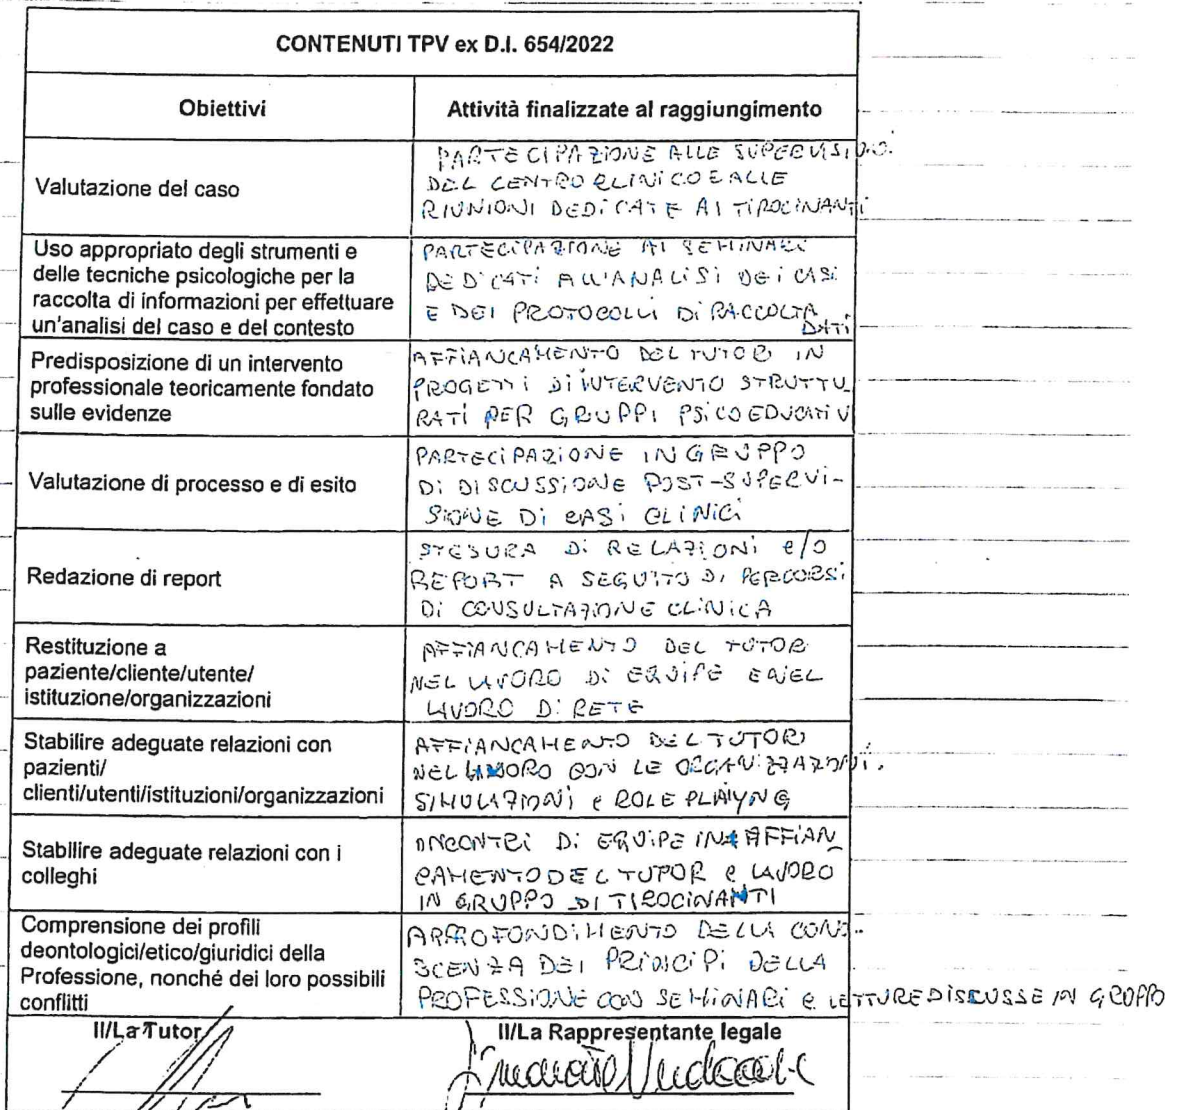 CONTENUTI TPV ex D.I. 654/2022
Obiettivi
Attività finalizzate al raggiungimento
Valutazione del caso
PARTECIPAZIONE ALLE SUPERVISIONI
DEL CENTRO CLINICO E ALLE
RIUNIONI DEDICATE AI TIROCINANTI
Uso appropriato degli strumenti e
delle tecniche psicologiche per la
raccolta di informazioni per effettuare
un'analisi del caso e del contesto
PARTECIPAZIONE AI SEMINARI
DEDICATI ALL'ANALISI DEI CASI
E DEI PROTOCOLLI DI RACCOLTA
DATI
Predisposizione di un intervento
professionale teoricamente fondato
sulle evidenze
AFFIANCAMENTO DEL TUTOR IN
PROGETTI DI INTERVENTO STRUTTU_
RATI PER GRUPPI PSICOEDUCATIVI
Valutazione di processo e di esito
PARTECIPAZIONE IN GRUPPO
DI DISCUSSIONE POST-SUPERVI-
SIONE DI CASI CLINICI
Redazione di report
STESURA DI RELAZIONI e/o
REPORT A SEGUITO DI PERCORSI
DI CONSULTAZIONE CLINICA
Restituzione a
paziente/cliente/utente/
istituzione/organizzazioni
AFFIANCAMENTO DEL TUTOR
NEL LAVORO DI EQUIPE E NEL
LAVORO DI RETE
Stabilire adeguate relazioni con
pazienti/
clienti/utenti/istituzioni/organizzazioni
AFFIANCAMENTO DEL TUTOR
NEL LAVORO CON LE ORGANIZZAZIONI.
SIMULAZIONI e ROLE PLAIYNG
Stabilire adeguate relazioni con i
colleghi
INCONTRI DI EQUIPE IN AFFIAN_
CAMENTO DEL TUTOR e LAVORO
IN GRUPPO DI TIROCINANTI
Comprensione dei profili
deontologici/etico/giuridici della
Professione, nonché dei loro possibili
conflitti
APPROFONDIMENTO DELLA CONO-
SCENZA DEI PRINCIPI DELLA
PROFESSIONE CON SEMINARI e LETTURE DISCUSSE IN GRUPPO
Il/La Tutor
Il/La Rappresentante legale